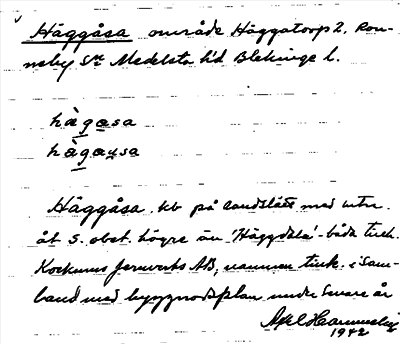 Häggåsa område Häggatorp 2, Ron-
neby sn Medelsta hd Blekinge l.
hàgasa
hàgausa
Häggåsa, kb på landslått med utm.
åt S. obet. högre än 'Häggdala' - båda tink.
Kockums Jernverks AB, namnen tink. i sam-
band med byggnadsplan under senare år
1942